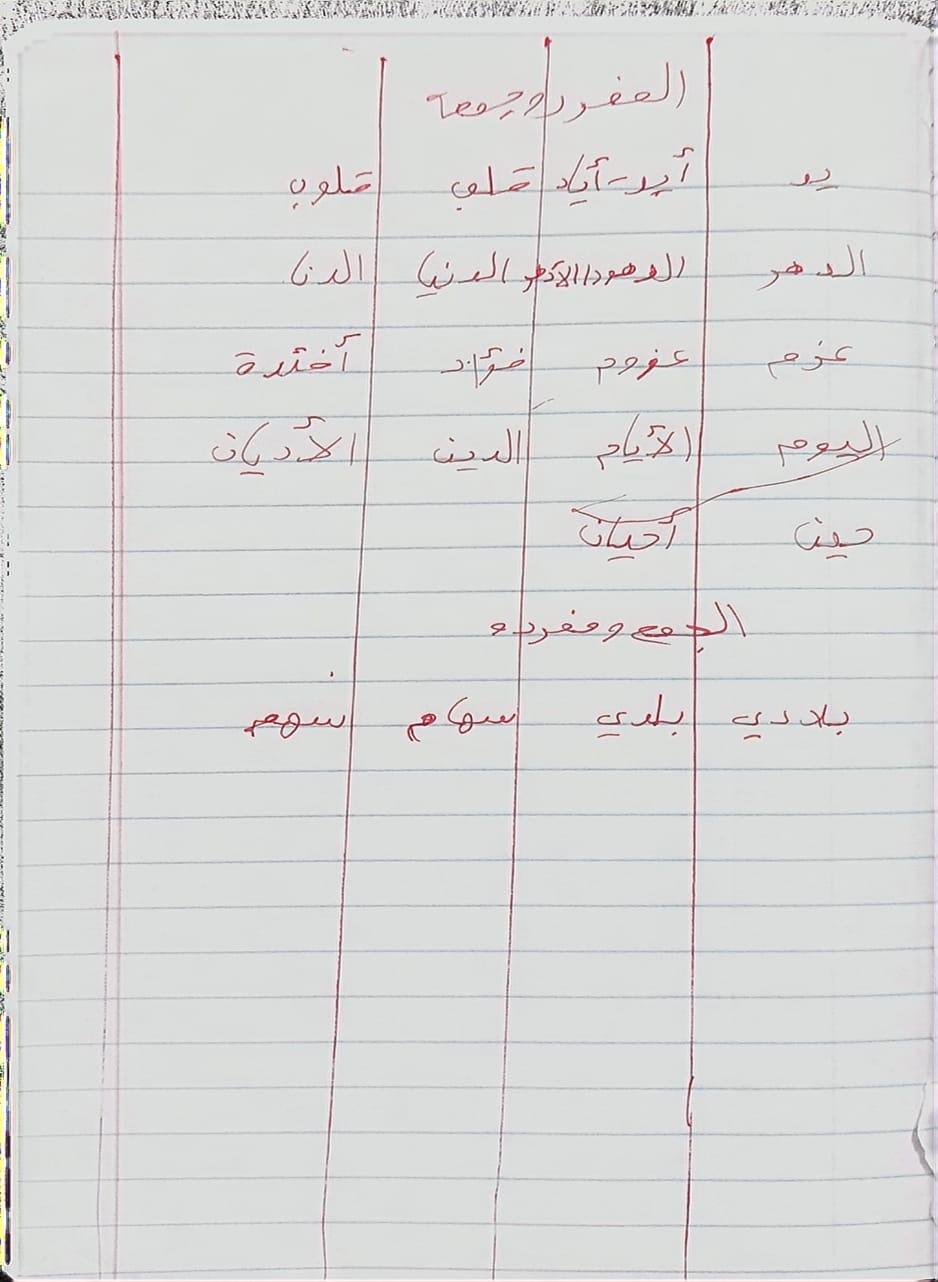 المفرد وجمعه
يد أيد - أياد قلب قلوب
الدهر الدهور / الأدهر الدنيا الدنا
عزم عزوم فؤاد أفئدة
اليوم الأيام الدين الأديان
حين أحيان
الجمع ومفرده
بلادي بلدي سهام سهم